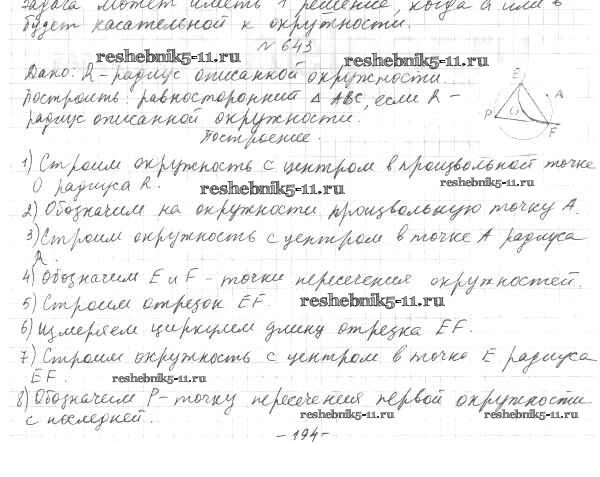 задача может иметь 1 решение, когда a или b
будет касательной к окружности.
№ 643
reshebnik5-11.ru
reshebnik5-11.ru
Дано: R - радиус описанной окружности.
Построить: равносторонний Δ ABC, если R -
радиус описанной окружности.
Построение.
E
A
P
O
F
1) Строим окружность с центром в произвольной точке
O радиуса R.
reshebnik5-11.ru
reshebnik5-11.ru
2) Обозначим на окружности произвольную точку A.
3) Строим окружность с центром в точке A радиуса
R.
4) Обозначим E и F - точки пересечения окружностей.
5) Строим отрезок EF.
reshebnik5-11.ru
6) Измеряем циркулем длину отрезка EF.
7) Строим окружность с центром в точке E радиуса
EF.
reshebnik5-11.ru
8) Обозначим P - точку пересечения первой окружности
с последней.
reshebnik5-11.ru
reshebnik5-11.ru
- 194 -